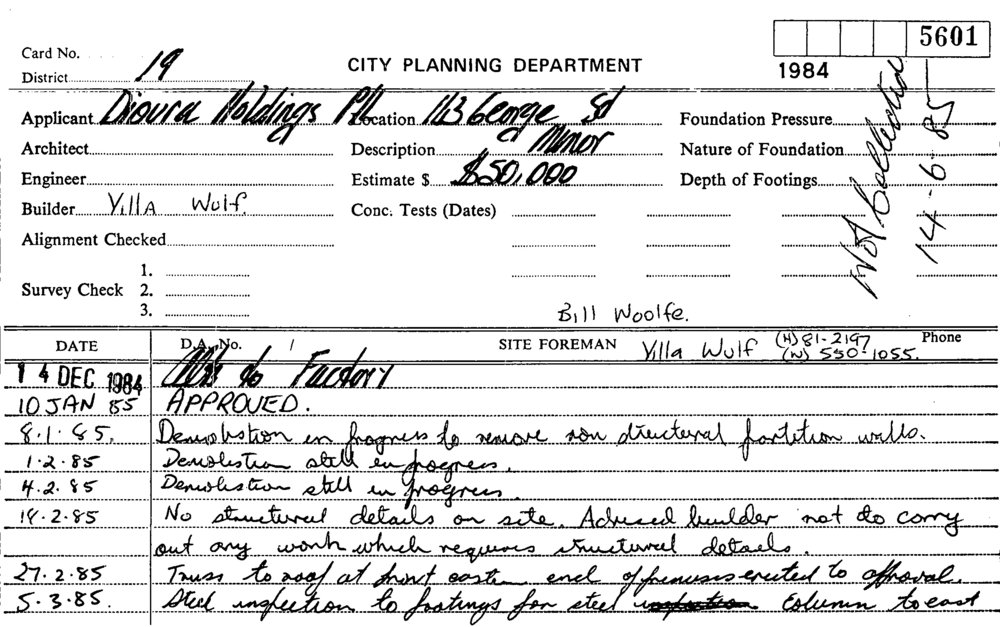 5601
Card No.
District 19
CITY PLANNING DEPARTMENT
1984
Applicant Dioura Holdings P/L Location 113 George St Foundation Pressure
Architect Description Minor Nature of Foundation
Engineer Estimate $ $50,000 Depth of Footings
Not Collected
14-6-85
Builder Villa Wulf. Conc. Tests (Dates)
Alignment Checked
1.
Survey Check 2.
3.
Bill Woolfe.
DATE D.A. No. / SITE FOREMAN Villa Wulf (H) 81-2197 Phone
(W) 550-1055.
14 DEC 1984 Alts to Factory
10 JAN 85 APPROVED.
8.1.85. Demolistion in progress to remove non structural partition walls.
1.2.85 Demolistion still in progress.
4.2.85 Demolistion still in progress.
14.2.85 No structural details on site. Advised builder not to carry
out any work which requires structural details.
27.2.85 Truss to roof at front eastern end of premises erected to approval.
5.3.85. Steel inspection to footings for steel column to east